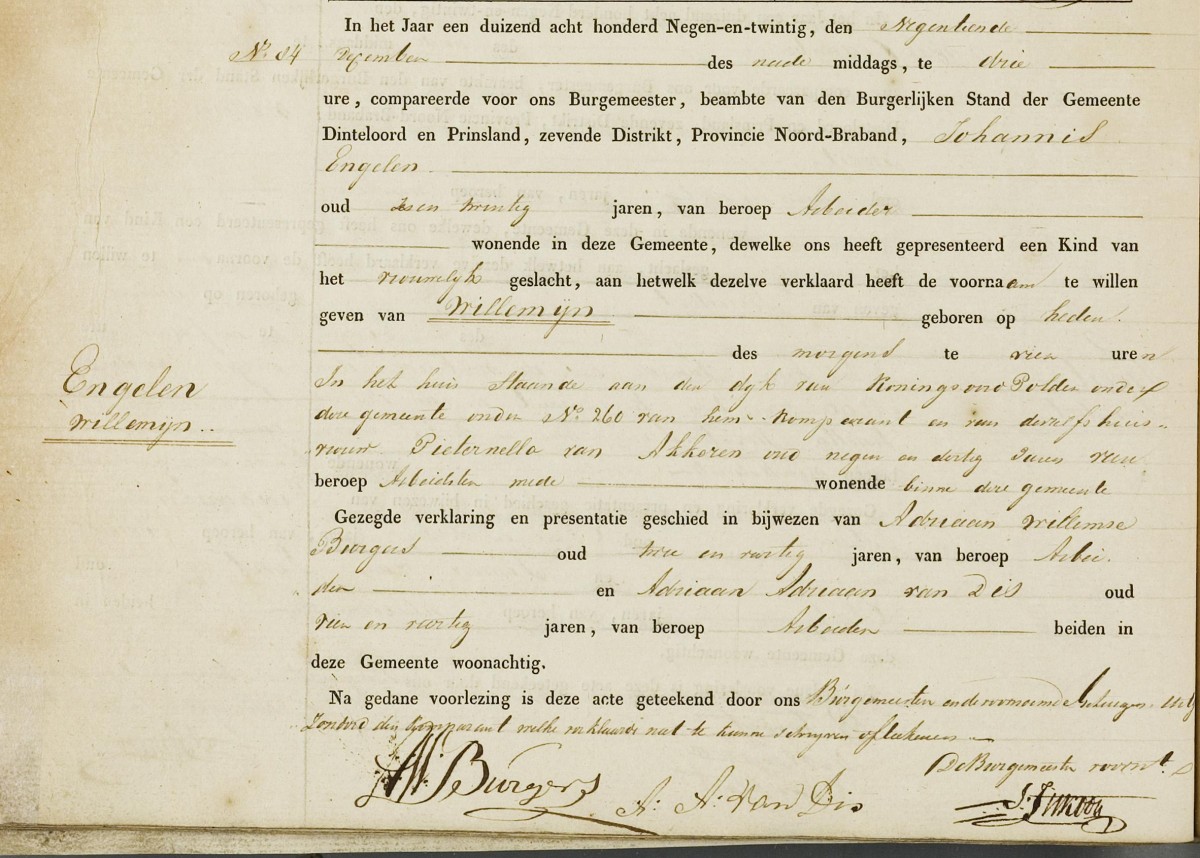 In het Jaar een duizend acht honderd Negen-en-twintig, den Negentiende
No. 84 December des nade middags, te drie
ure, compareerde voor ons Burgemeester, beambte van den Burgerlijken Stand der Gemeente
Dinteloord en Prinsland, zevende Distrikt, Provincie Noord-Braband, Johannis
Engelen
oud twintig jaren, van beroep Arbeider
wonende in deze Gemeente, dewelke ons heeft gepresenteerd een Kind van
het vrouwelijk geslacht, aan hetwelk dezelve verklaard heeft de voornaam te willen
geven van Willemijn geboren op heden.
des morgens te vier uren
Engelen
Willemijn..
In het huis staande aan den dijk van Koningsoord Polder onder
deze gemeente onder No. 260 van hem Komparant en van deszelfs huis-
vrouw Pieternella van Akkeren oud negen en dertig Jaren van
beroep Arbeidster mede wonende binne deze gemeente
Gezegde verklaring en presentatie geschied in bijwezen van Adriaan Willemse
Burgers oud twee en veertig jaren, van beroep Arbei-
der en Adriaan Adriaan van Dis oud
vier en veertig jaren, van beroep Arbeider beiden in
deze Gemeente woonachtig.
Na gedane voorlezing is deze acte geteekend door ons Burgemeester en de voornoemde Getuigen
Comparant welke verklaarde niet te kunne schrijven of teekenen
De Burgemeester voornt.
AW Burgers
A: A: van Dis